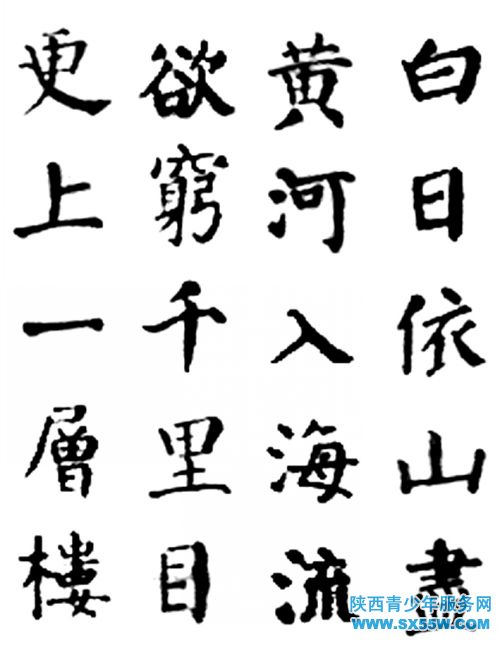 白日依山盡
黄河入海流
欲窮千里目
更上一層樓
陕西青少年服务网
www.sx55w.com